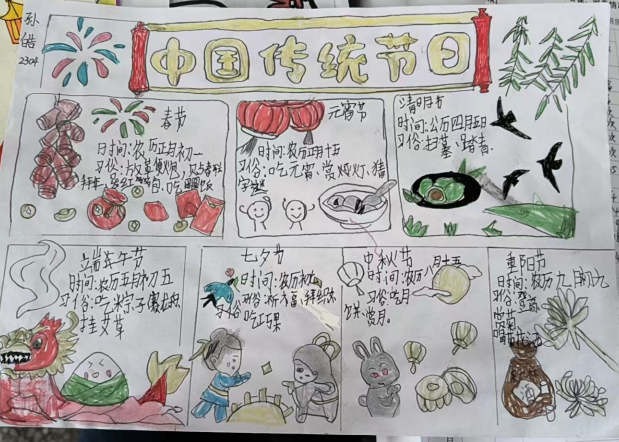 孙
皓
2304
中国传统节日
春节
时间:农历正月初一
习俗:放革便火包
拜年
吃团圆饭
元宵节
时间:农历正月十五
习俗:吃元宵、赏灯、猜
字谜
清明节
时间:公历四月五日
习俗:扫墓、踏青.
端午节
时间:农历五月初五
习俗:吃粽子、赛龙舟
挂艾草
七夕节
时间:农历初
习俗:
吃巧果
中秋节
时间:农历八月十五
习俗:吃月
饼、赏月.
重阳节
时间:农历九月初九
习俗:登高
赏菊
酒